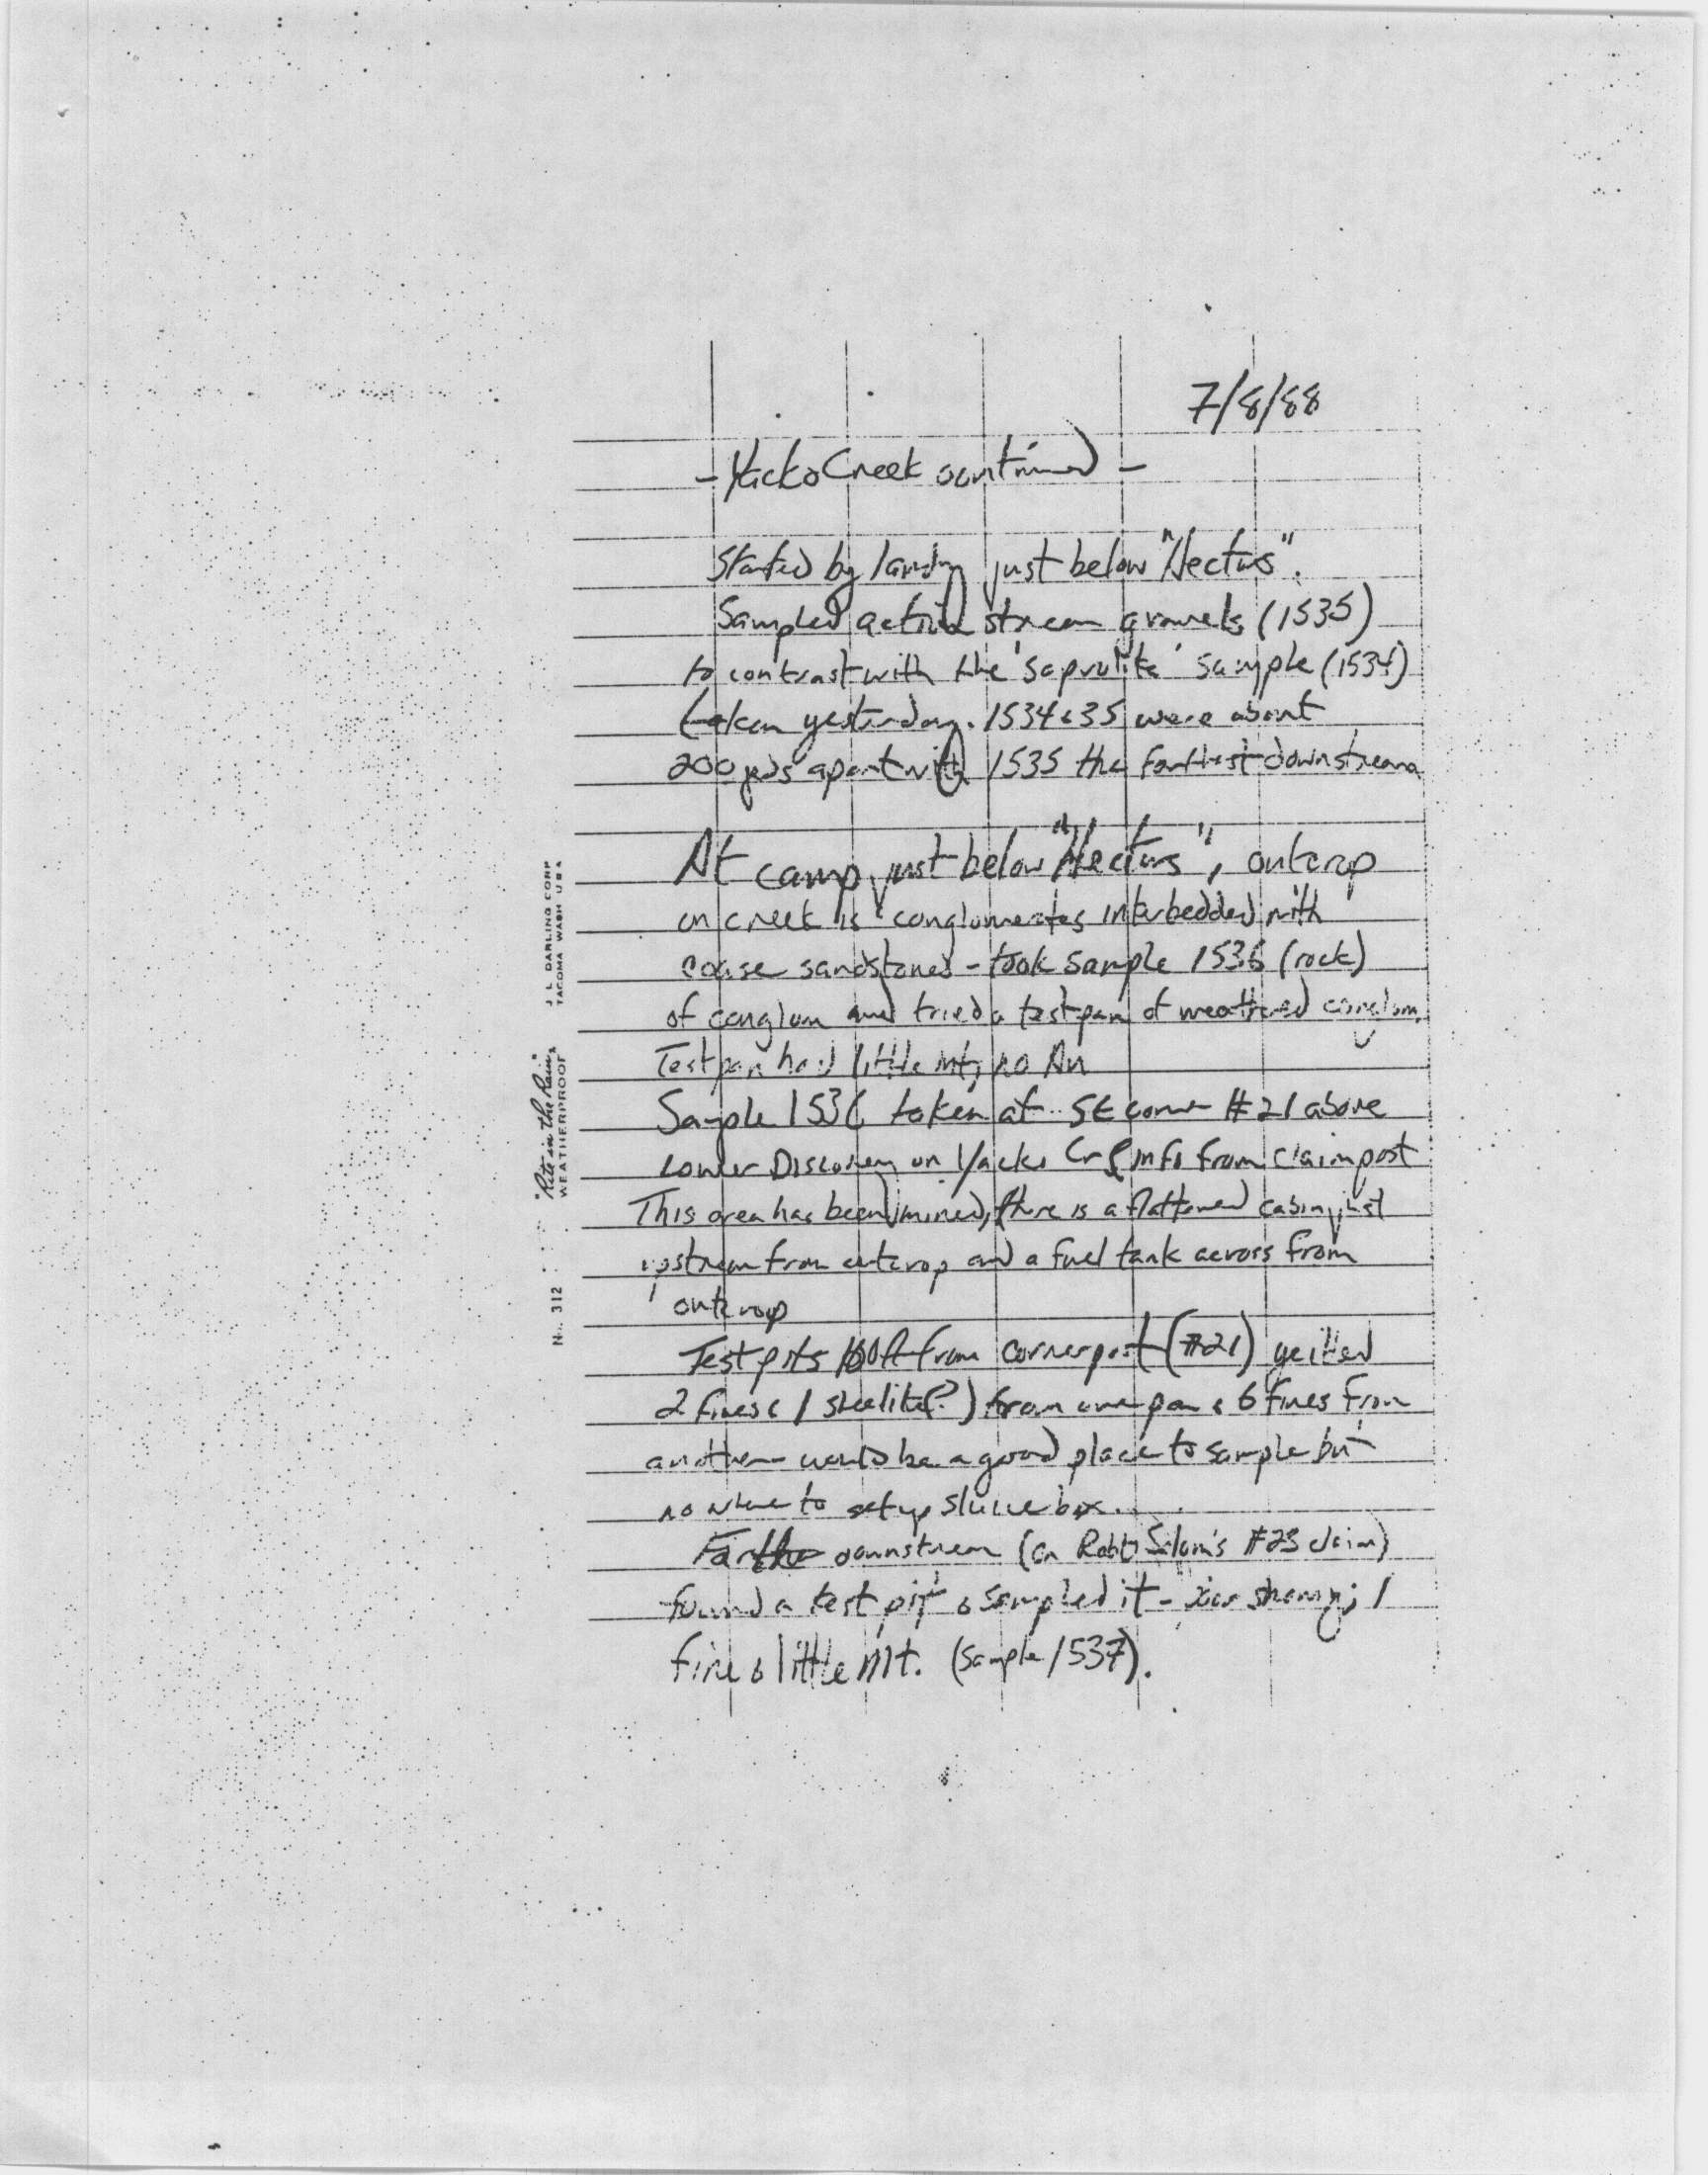 7/8/88
- Yacko Creek continued -
Started by landing just below "Hectors".
Sampled active stream gravels (1535)
to contrast with the 'saprolite' sample (1534)
taken yesterday. 1534 & 35 were about
200 yds apart with 1535 the farthest downstream
At camp just below "Hectors", outcrop
on creek is conglomerates interbedded with
coarse sandstones - took sample 1536 (rock)
of conglom and tried a testpan of weathered conglom.
Testpan had little mt, no Au
Sample 1536 taken at SE corner #21 above
Lower Discovery on Yacko Cr info from claimpost
This area has been mined, there is a flattened cabin just
upstream from outcrop and a fuel tank across from
outcrop
Test pits 100ft from cornerpost (#21) yeilded
2 fines (1 sheelite?) from one pan & 6 fines from
another would be a good place to sample but
no where to set up sluice box....
Farther downstream (on #23 claim)
found a test pit & sampled it - ; 1
fine & little Mt. (Sample 1537).
J. L. DARLING CORP
TACOMA WASH USA
"Rite in the Rain"
WEATHERPROOF
No. 312